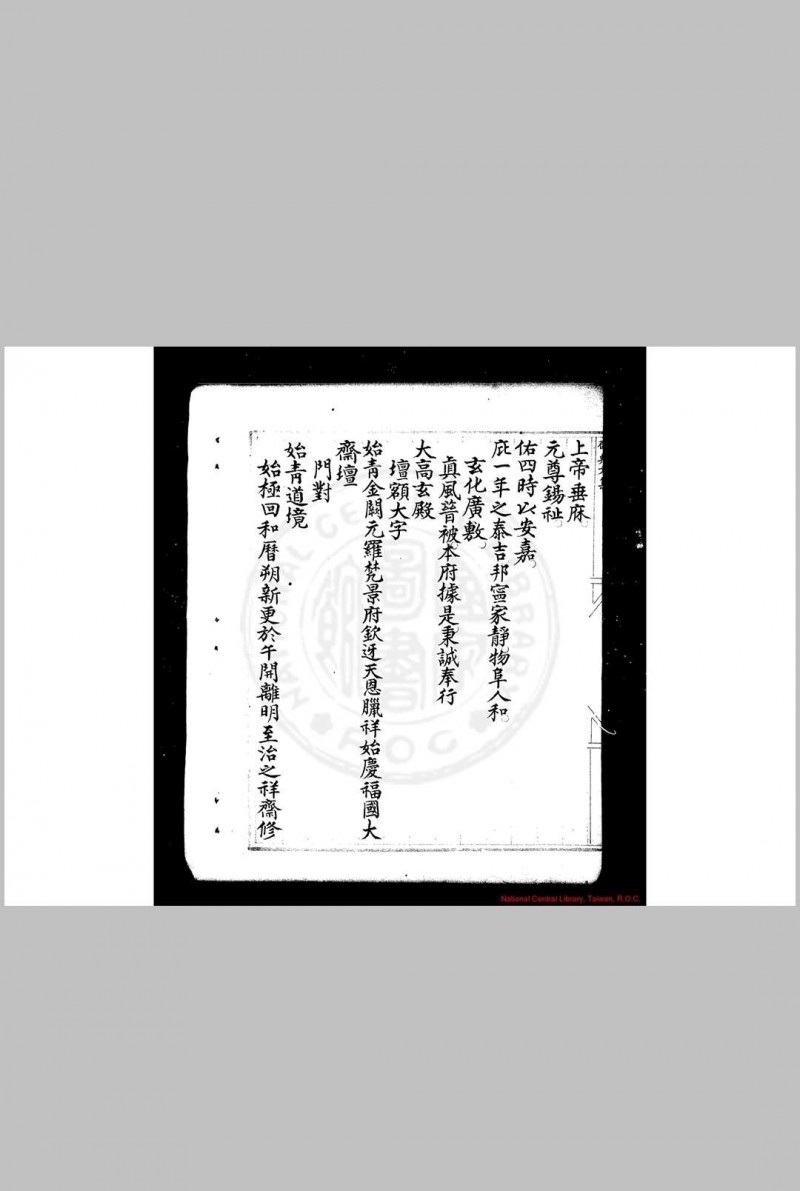 上帝垂庥
元尊錫祉
佑四時以安嘉
庇一年之泰吉邦寧家靜物阜人和
玄化廣敷
真風普被本府據是秉誠奉行
大高玄殿
壇額大字
始青金闕元羅梵景府欽迓天恩臘祥始慶福國大
齋壇
門對
始青道境
始極回和曆朔新更於午開離明至治之祥齋修
National Central Library, Taiwan, R.O.C.